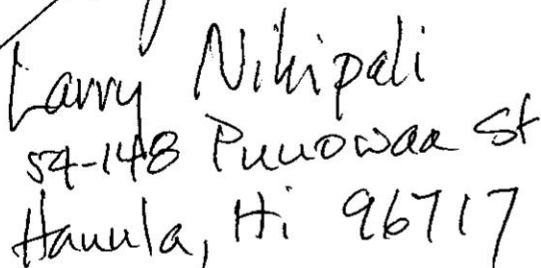 Larry Nihipali
54-148 Puuowaa St
Hauula, Hi 96717